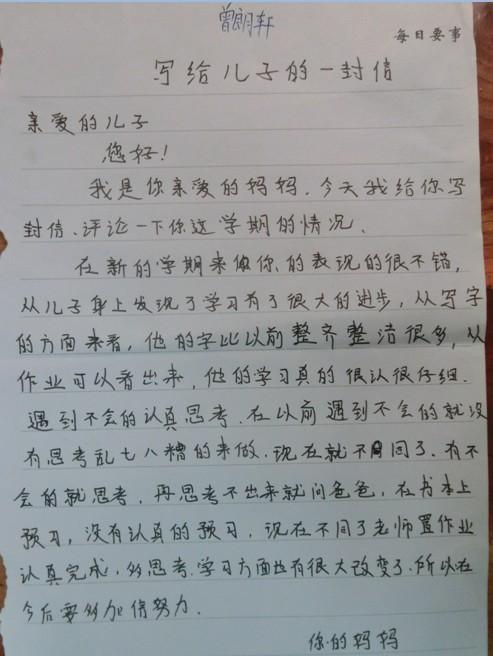 曾朗轩
每日要事
写给儿子的一封信
亲爱的儿子
您好!
我是你亲爱的妈妈.今天我给你写
封信、评论一下你这学期的情况、
在新的学期来做你的表现的很不错,
从儿子身上发现了学习有了很大的进步,从写字
的方面来看,他的字比以前整齐整洁很多,从
作业可以看出来,他的学习真的很认很仔细.
遇到不会的认真思考.在以前遇到不会的就没
有思考乱七八糟的来做.现在就不同了.有不
会的就思考.再思考不出来就问爸爸,在书本上
预习,没有认真的预习.现在不同了老师置作业
认真完成,多思考.学习方面也有很大改变了.所以在
今后要多加倍努力.
你的妈妈